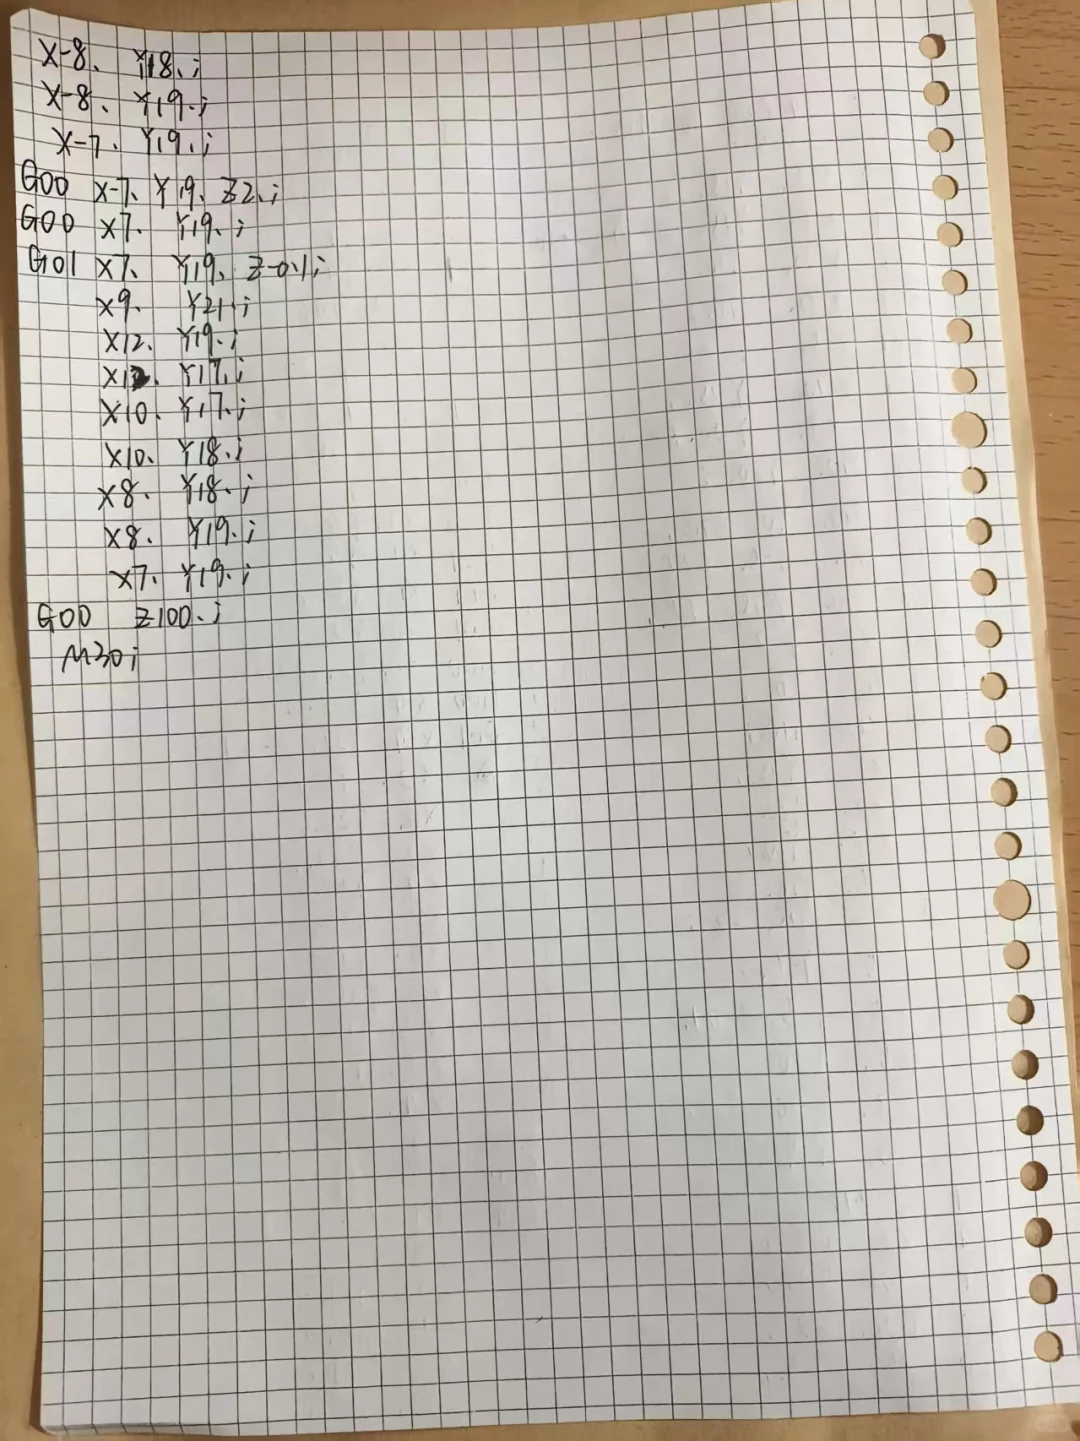 X-8. Y18.;
X-8. Y19.;
X-7. Y19.;
G00 X-7. Y19. Z2.;
G00 X7. Y19.;
G01 X7. Y19. Z-0.1;
X9. Y21.;
X12. Y19.;
X12. Y17.;
X10. Y17.;
X10. Y18.;
X8. Y18.;
X8. Y19.;
X7. Y19.;
G00 Z100.;
M30;